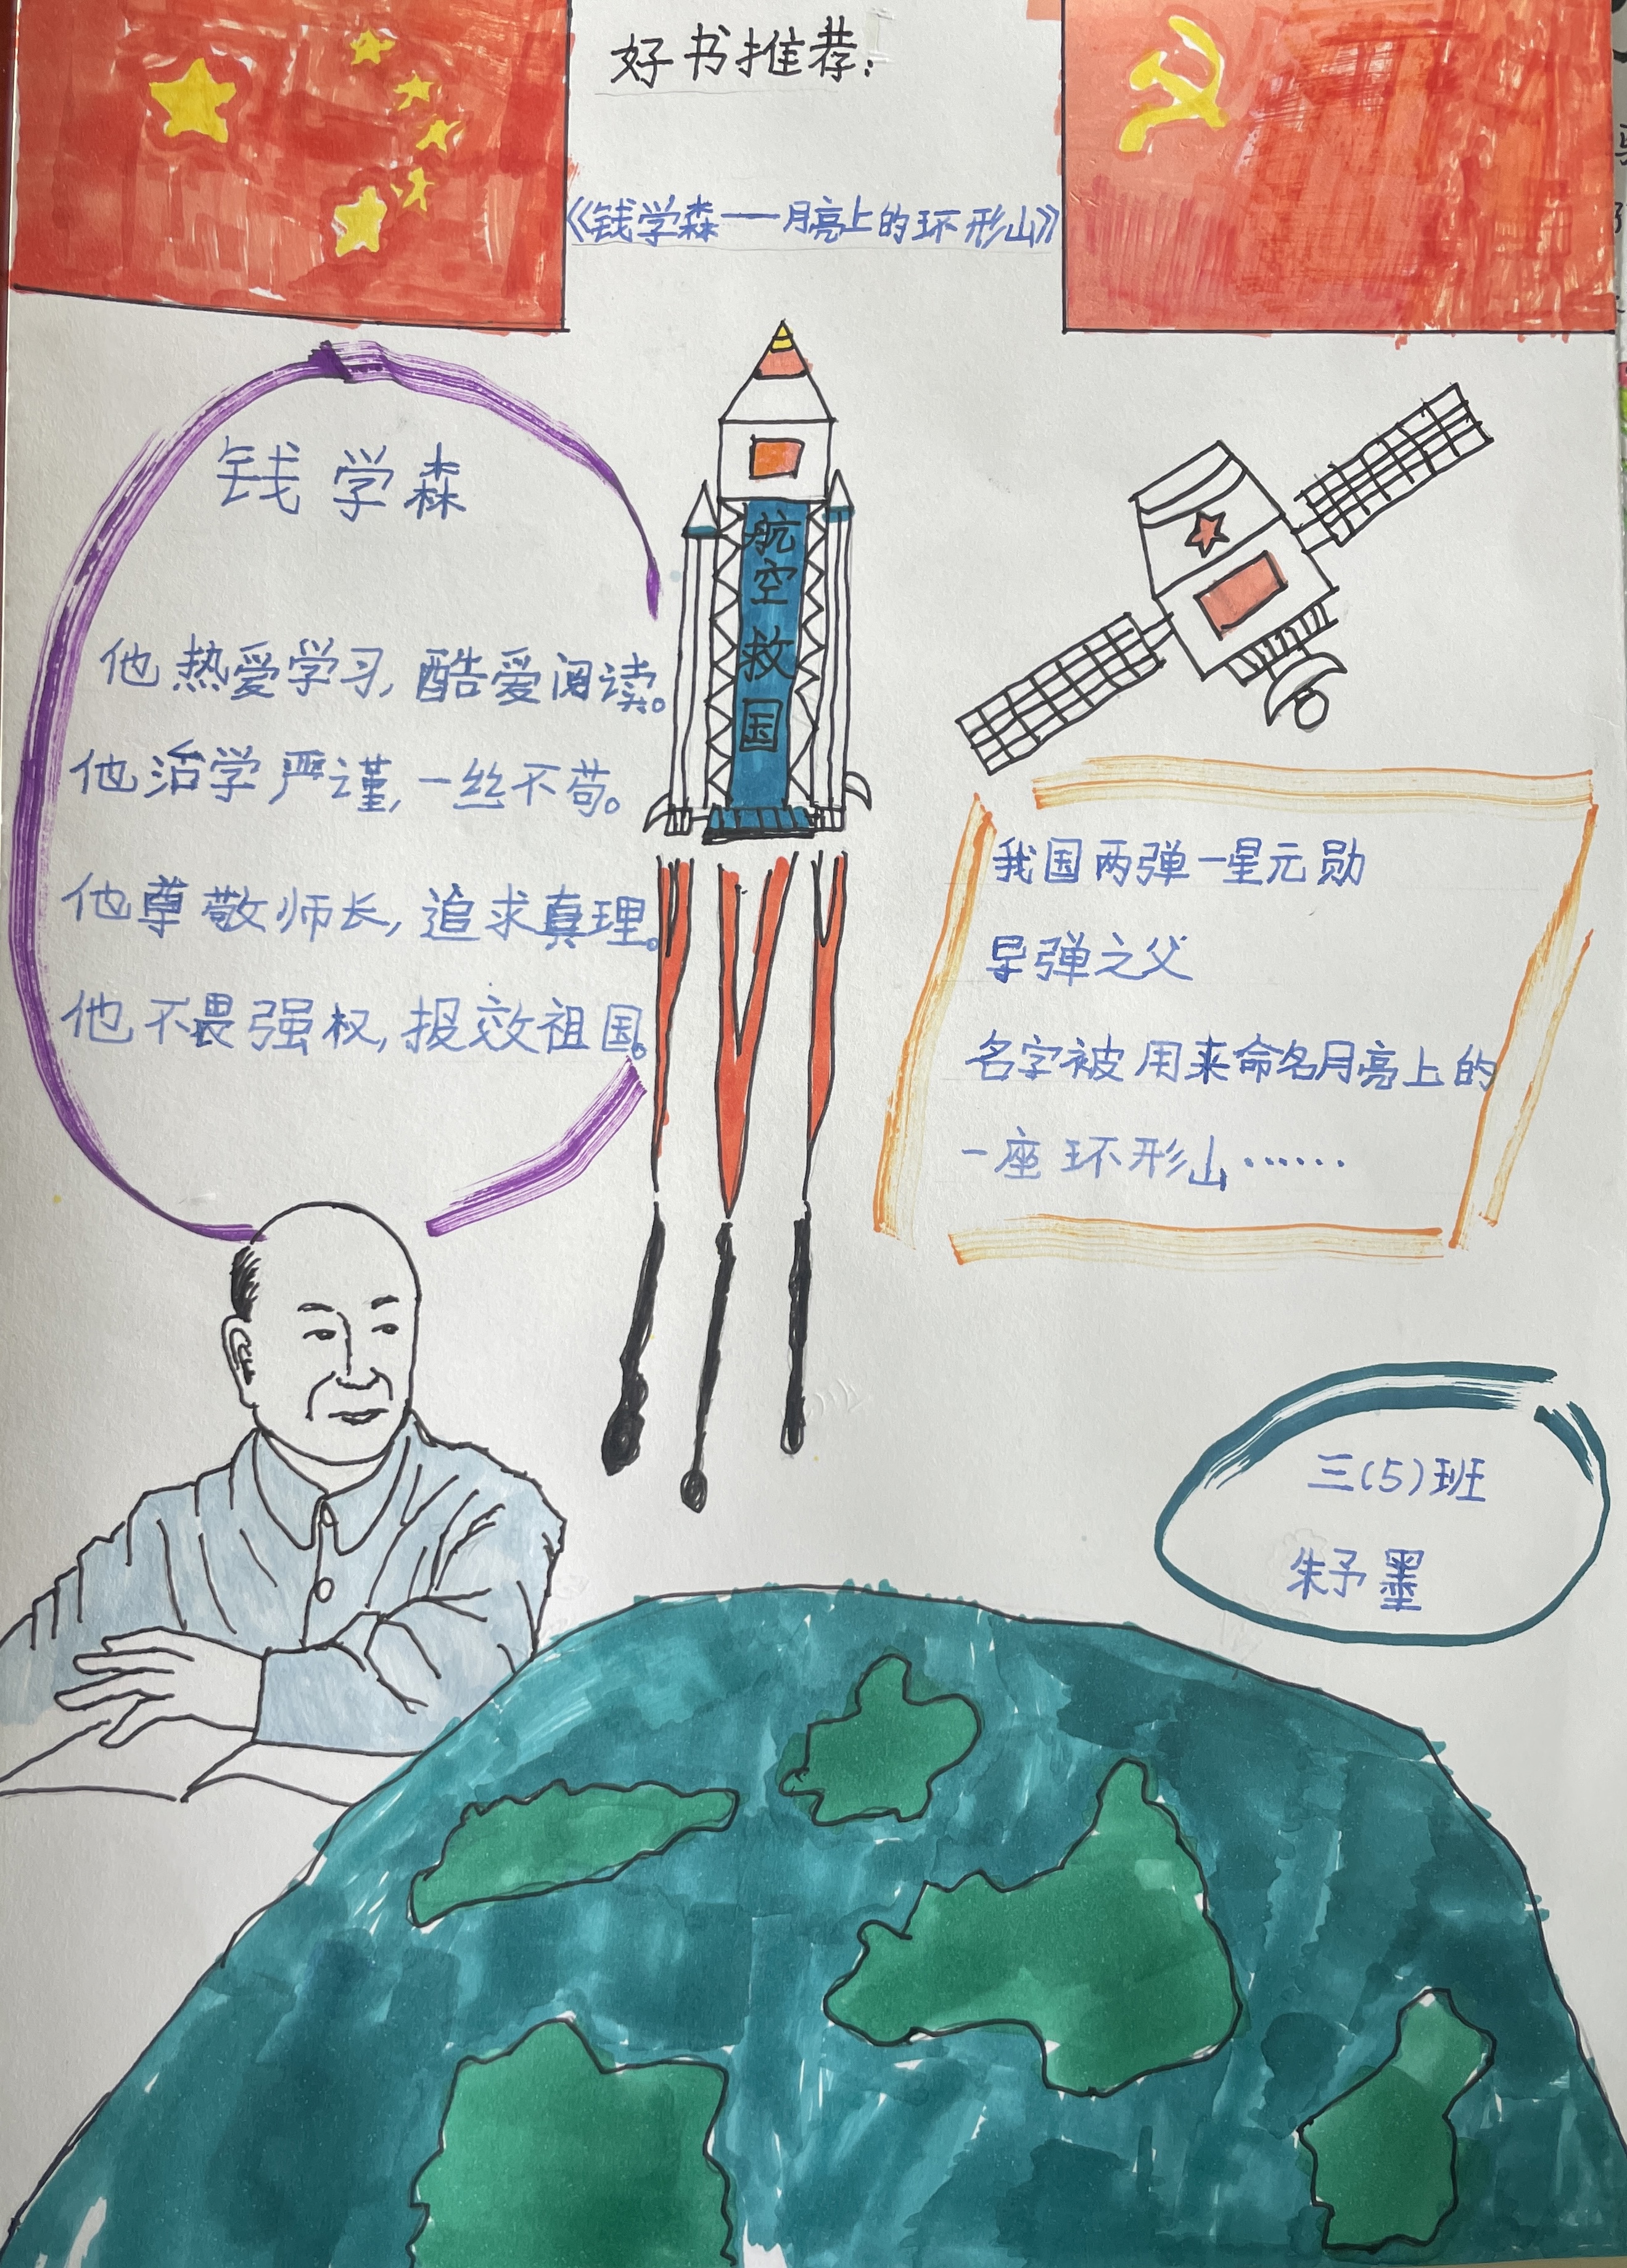 好书推荐：
《钱学森——月亮上的环形山》
钱学森
他热爱学习,酷爱阅读。
他治学严谨,一丝不苟。
他尊敬师长,追求真理。
他不畏强权,报效祖国。
航
空
救
国
我国两弹一星元勋
导弹之父
名字被用来命名月亮上的
一座环形山……
三(5)班
朱予墨